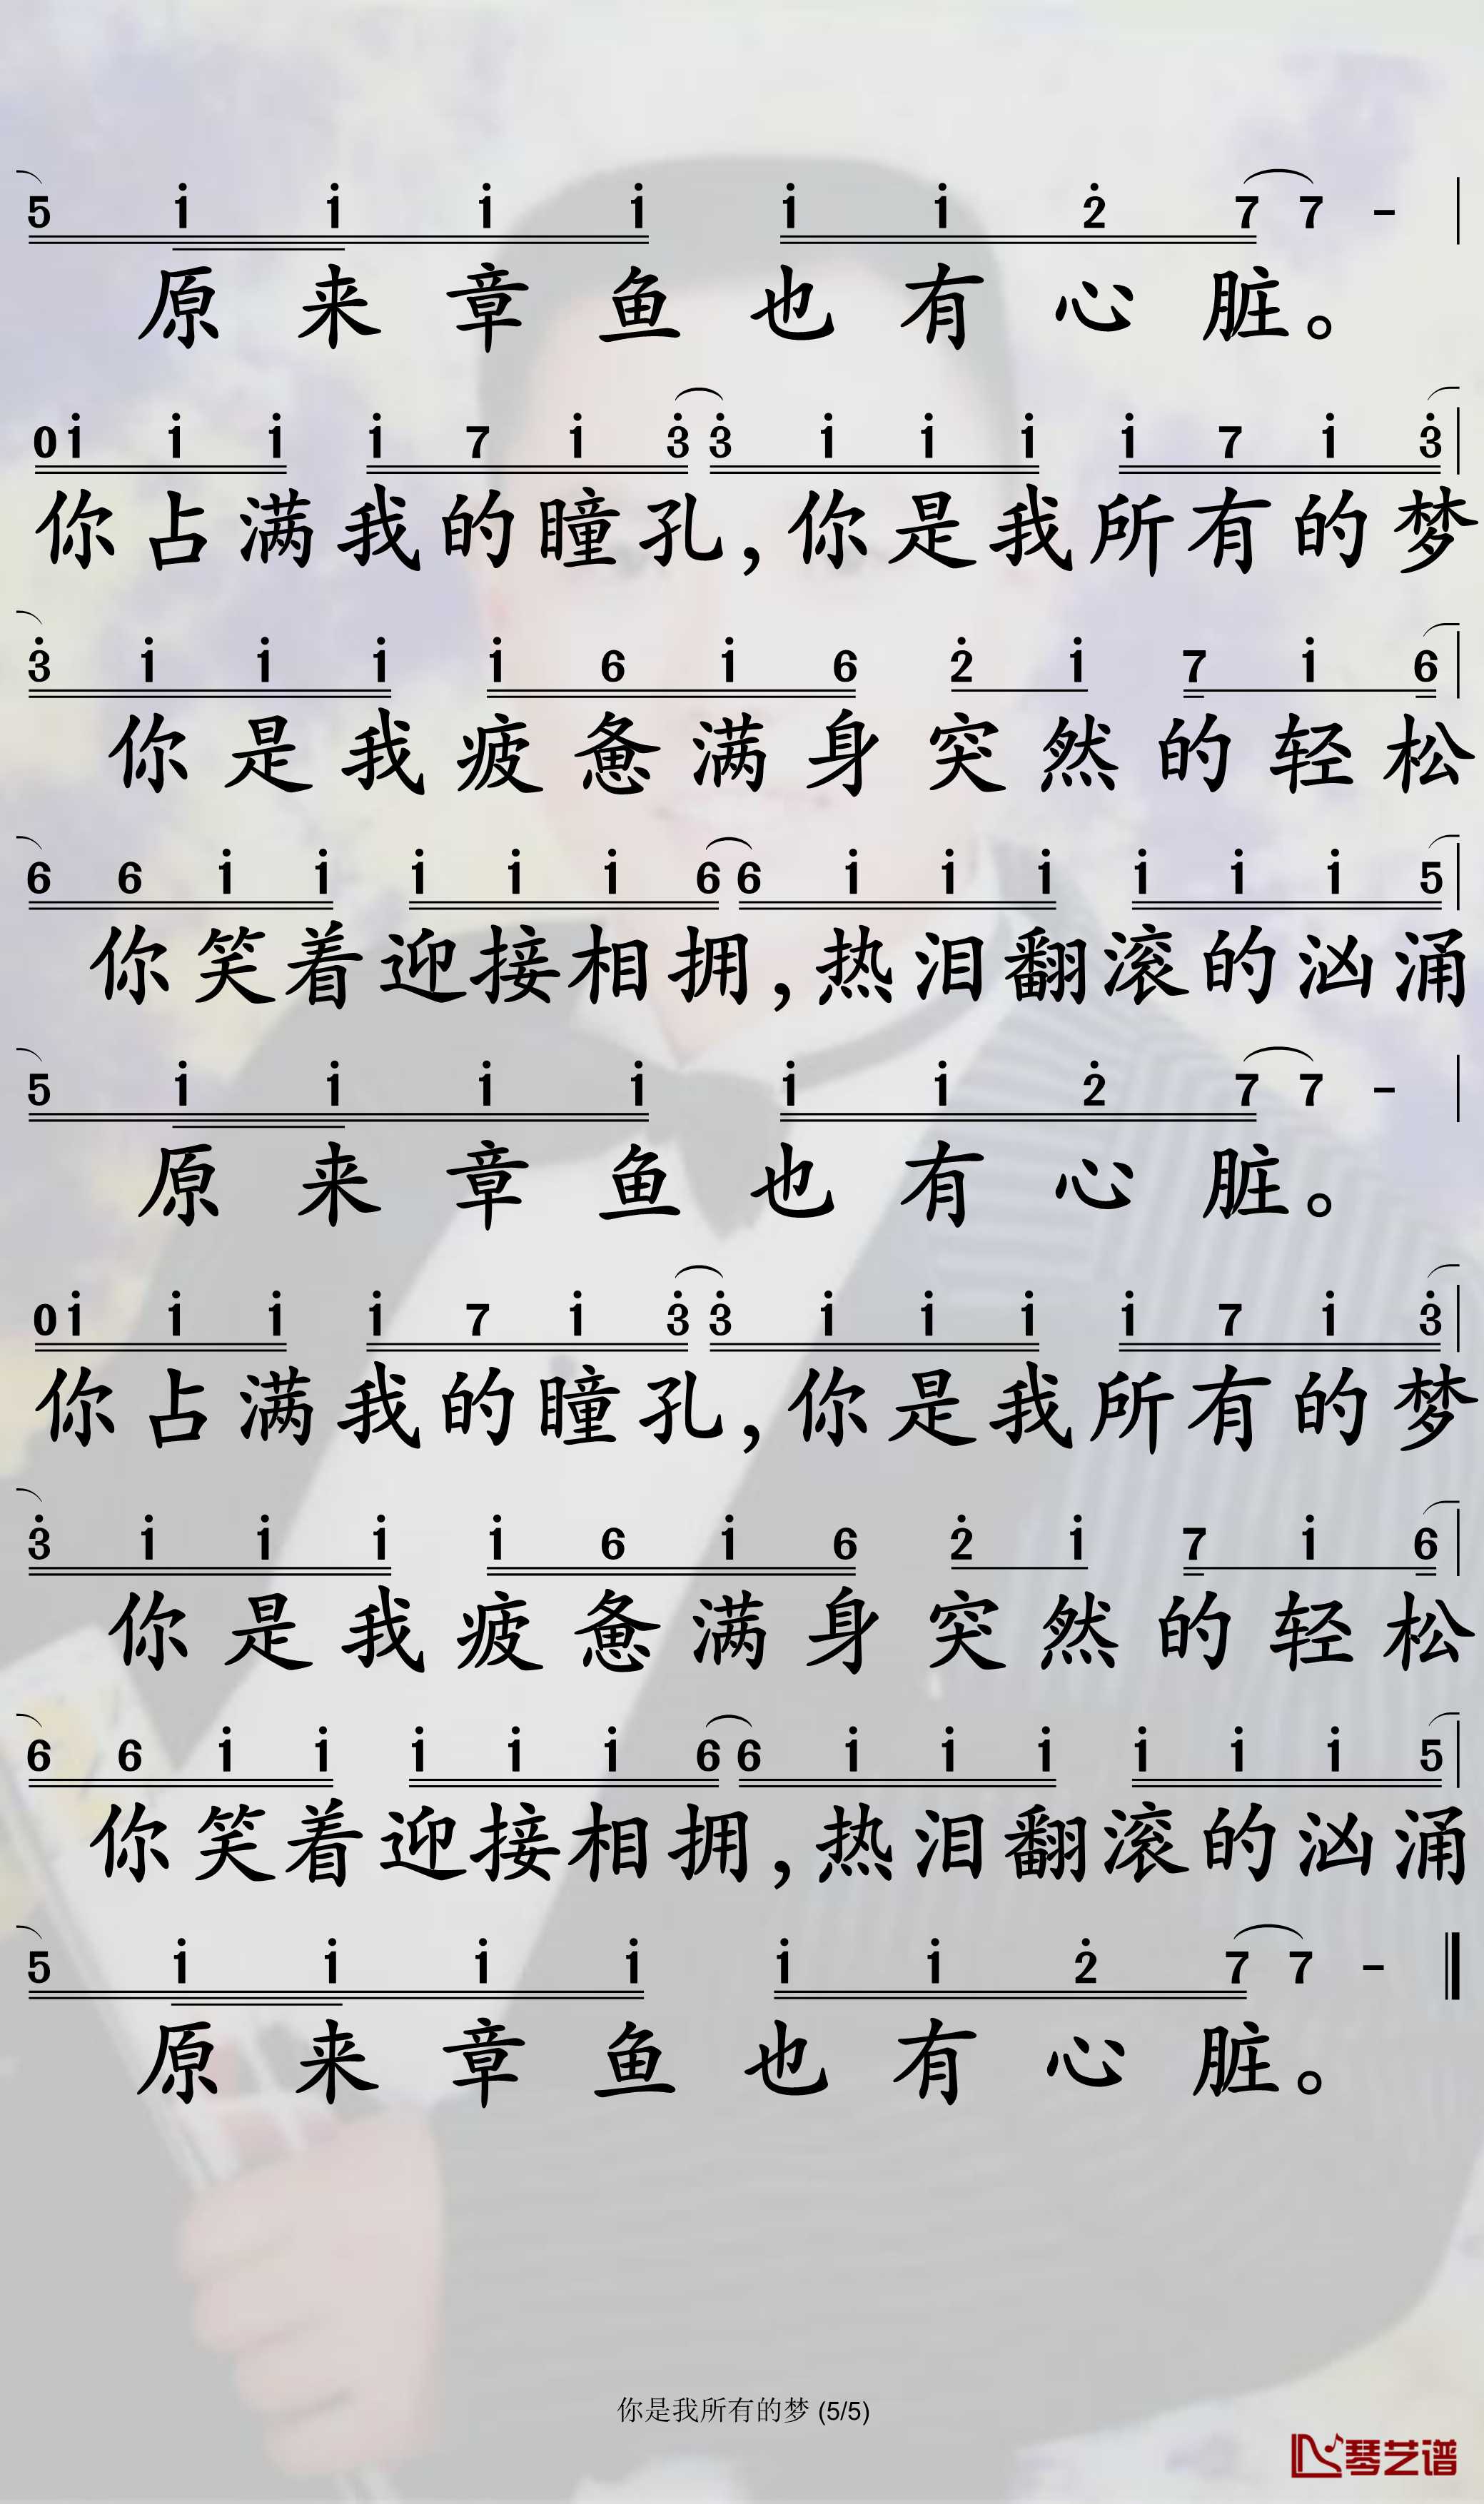 5 i i i i i i 2 7 7 -
原来章鱼也有心脏。
0 i i i i 7 i 3 3 i i i i 7 i 3
你占满我的瞳孔,你是我所有的梦
3 i i i i 6 i 6 2 i 7 i 6
你是我疲惫满身突然的轻松
6 6 i i i i i 6 6 i i i i i i 5
你笑着迎接相拥,热泪翻滚的汹涌
5 i i i i i i 2 7 7 -
原来章鱼也有心脏。
0 i i i i 7 i 3 3 i i i i 7 i 3
你占满我的瞳孔,你是我所有的梦
3 i i i i 6 i 6 2 i 7 i 6
你是我疲惫满身突然的轻松
6 6 i i i i i 6 6 i i i i i i 5
你笑着迎接相拥,热泪翻滚的汹涌
5 i i i i i i 2 7 7 -
原来章鱼也有心脏。
你是我所有的梦 (5/5)
琴艺谱